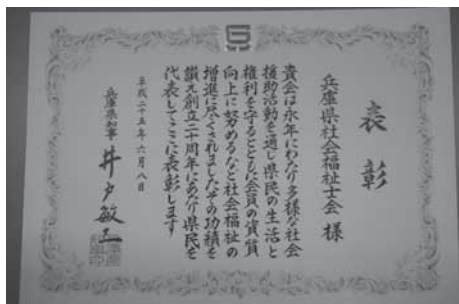 表彰
兵庫県社会福祉士会 様
貴会は永年にわたり多様な社会
援助活動を通し県民の生活と
権利を守るとともに会員の資質
向上に努めるなど社会福祉の
増進に尽くされましたその功績を
讃え創立二十周年にあたり県民を
代表してここに表彰します
平成二十五年六月八日
兵庫県知事 井戸敏三